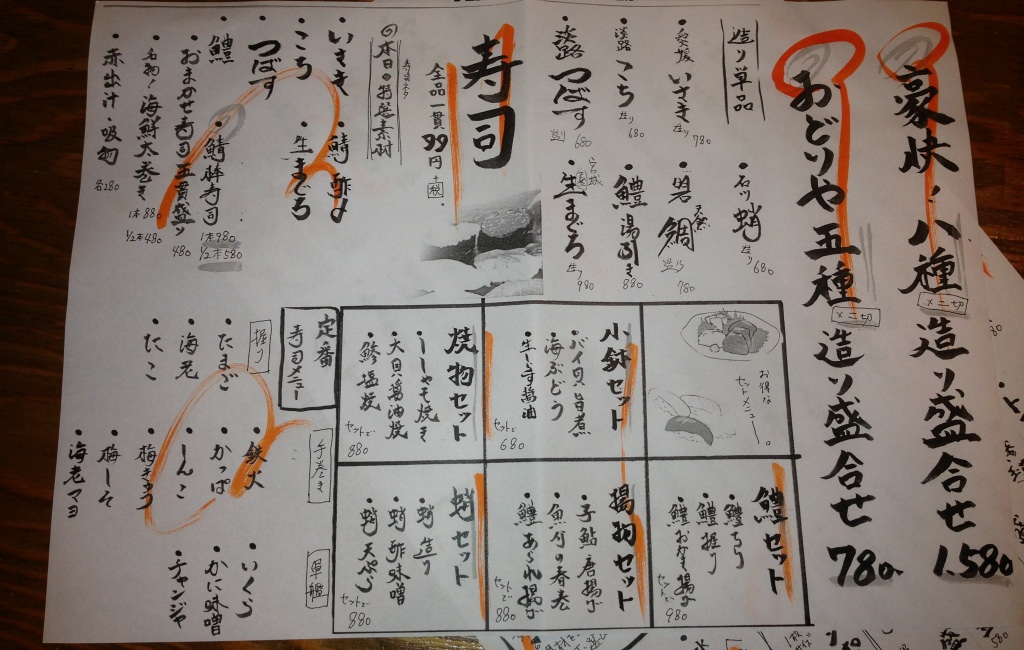 豪快！八種造り盛合せ 1.580
メニ切
おどりや五種造り盛合せ 780
メニ切
造り単品
・愛媛 いさき 造り 780
・淡路 こち 造り 680
・淡路 つばす 造り 680
・石川 蛸 造り 680
・天然 岩鯛 造り 780
・鱧湯引き 880
・宮城 生まぐろ 造り 980
寿司
全品一貫99円 +税
◎本日の特選素材
寿司ネタ
・いさき
・こち
・つばす
・鯖酢〆
・生まぐろ
・鱧
・鯖棒寿司 1本980 1/2本580
・おまかせ寿司五貫盛り 480
・名物！海鮮太巻き 1本880 1/2本480
・赤出汁・吸物 各180
お得な
セットメニュー。
小鉢セット
・バイ貝旨煮
・海ぶどう
・生しらす醤油
セットで680
焼物セット
・ししゃも焼き
・大貝醤油焼
・鯵塩焼
セットで880
鱧セット
・鱧ちり
・鱧握り
・鱧おかき揚げ
セットで980
揚物セット
・子鮎唐揚げ
・魚介の春巻
・鱧あられ揚げ
セットで880
蛸セット
・蛸造り
・蛸酢味噌
・蛸天ぷら
セットで880
定番
寿司メニュー
握り
・たまご
・海老
・たこ
手巻き
・鉄火
・かっぱ
・しんこ
・梅きゅう
・梅しそ
・海老マヨ
軍艦
・いくら
・かに味噌
・チャンジャ